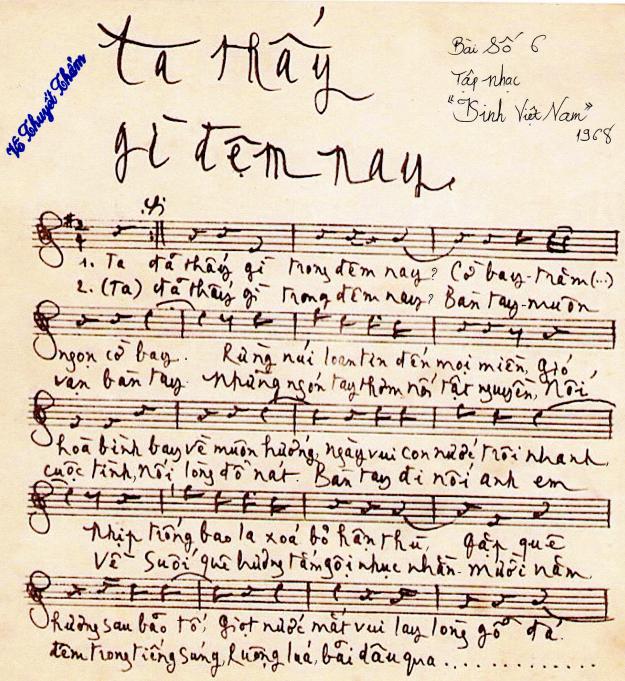 Ta thấy
gì đêm nay
Bài Số 6
Tập nhạc
"Kinh Việt Nam"
1968
Võ Thuyết Thảm
1. Ta đã thấy gì trong đêm nay? Cờ bay trăm (...)
2. (Ta) đã thấy gì trong đêm nay? Bàn tay muôn
ngọn cờ bay. Rừng núi loan tin đến mọi miền, gió
vạn bàn tay. Những ngón tay thơm nối tật nguyền, Nối
hoà bình bay về muôn hướng, ngày vui con nước trôi nhanh,
cuộc tình, nối lòng đổ nát. Bàn tay đi nối anh em
Nhịp trống bao la xoá bỏ hận thù, gặp quê
Về suối quê hương tắm gội nhục nhằn. Mười năm
hương sau bão tố; Giọt nước mắt vui lay lòng gỗ đá.
đêm trong tiếng súng, Ruộng lúa, bãi dâu qua . . . . . . . . . . . . .